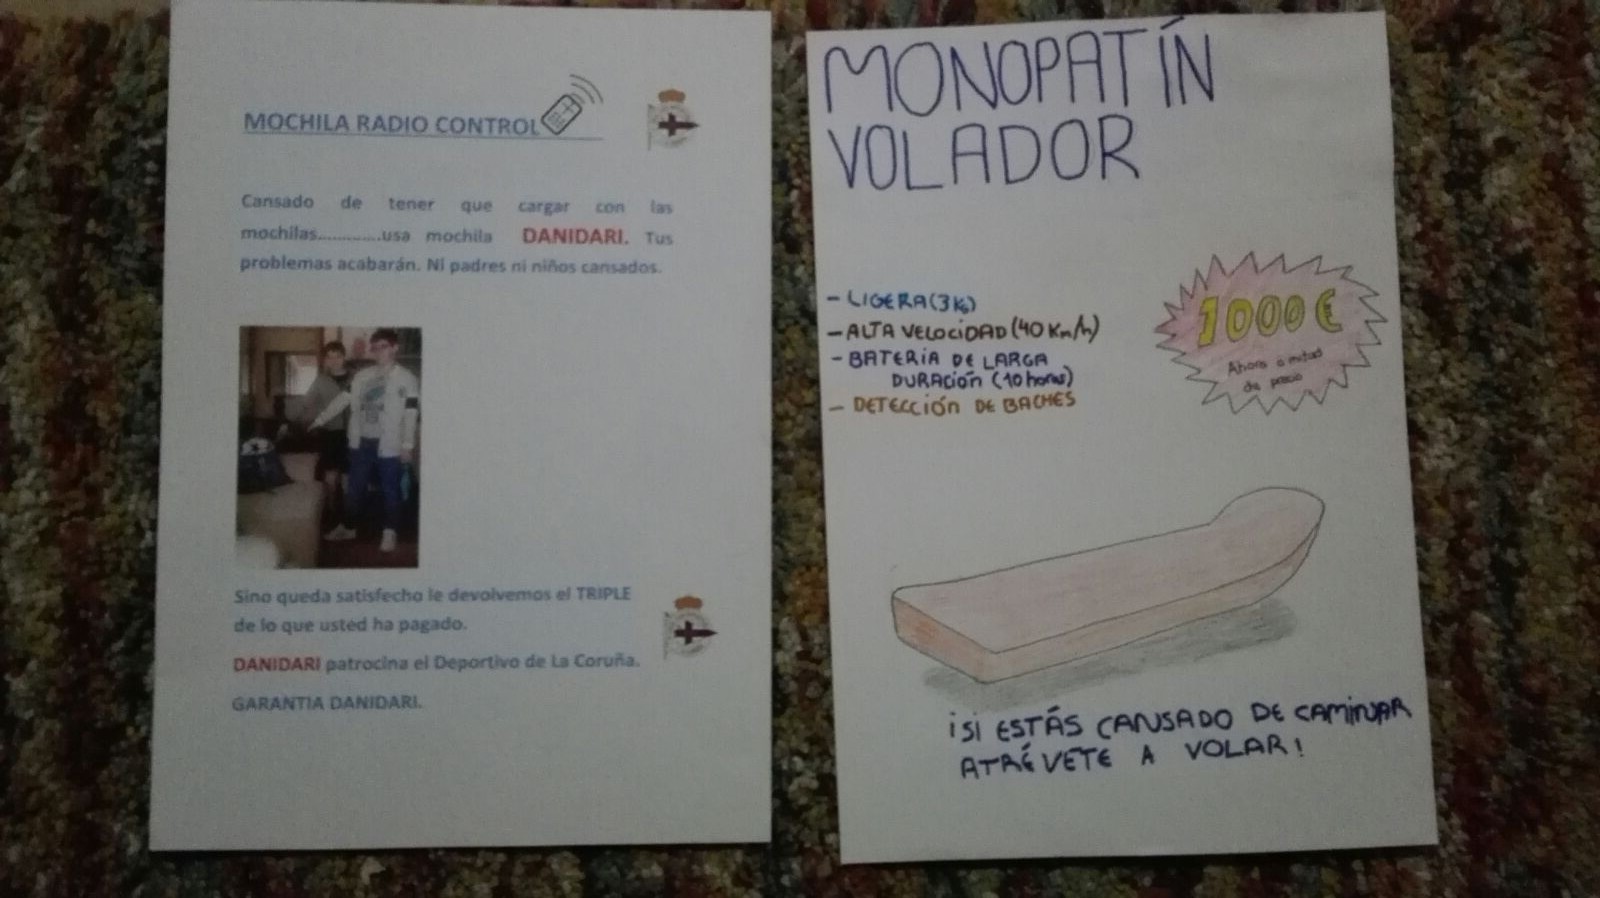 MOCHILA RADIO CONTROL
Cansado de tener que cargar con las
mochilas.............usa mochila DANIDARI. Tus
problemas acabarán. Ni padres ni niños cansados.
Sino queda satisfecho le devolvemos el TRIPLE
de lo que usted ha pagado.
DANIDARI patrocina el Deportivo de La Coruña.
GARANTIA DANIDARI.
MONOPATÍN
VOLADOR
- LIGERA (3 Kg)
- ALTA VELOCIDAD (40 Km/h)
- BATERÍA DE LARGA
DURACIÓN (10 horas)
- DETECCIÓN DE BACHES
1000 €
Ahora a mitad
de precio
¡SI ESTÁS CANSADO DE CAMINAR
ATRÉVETE A VOLAR!